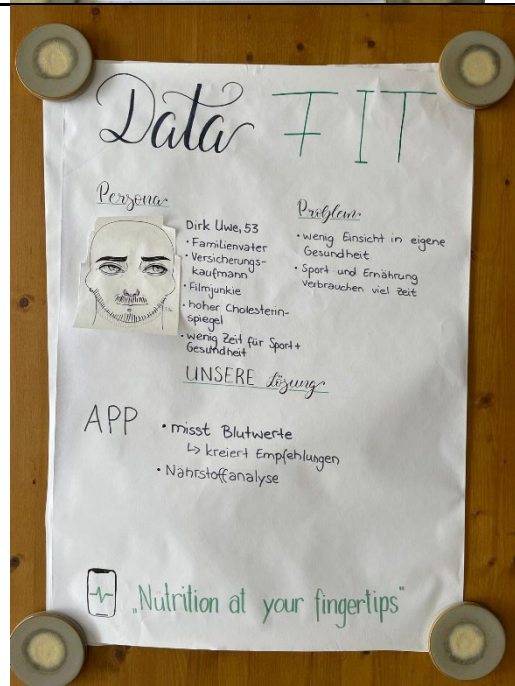 Data FIT
Persona
Dirk Uwe, 53
• Familienvater
• Versicherungs-
kaufmann
• Filmjunkie
• hoher Cholesterin-
spiegel
• wenig Zeit für Sport +
Gesundheit
Problem
• wenig Einsicht in eigene
Gesundheit
• Sport und Ernährung
verbrauchen viel Zeit
UNSERE Lösung
APP
• misst Blutwerte
↳ kreiert Empfehlungen
• Nährstoffanalyse
„Nutrition at your fingertips“